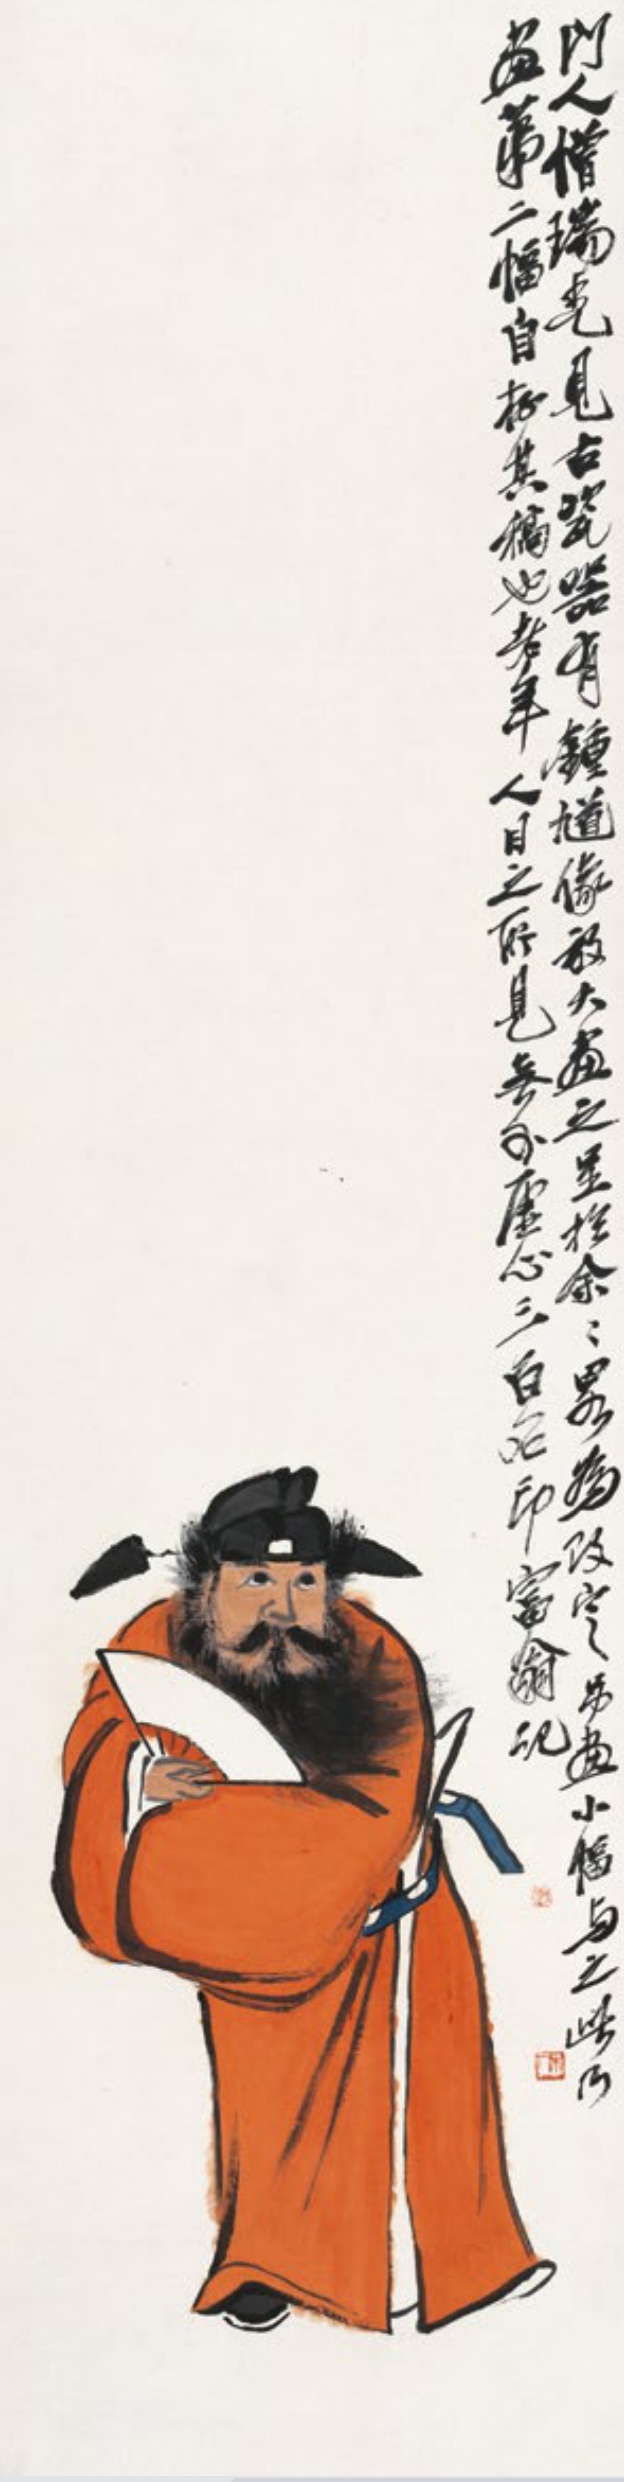 門人僧瑞光見古瓷器有鍾馗像放大畫之呈於余〻畧為改定另畫小幅與之此乃
畫第二幅自存其稿也老年人目之所見無不虛心三百石印富翁記